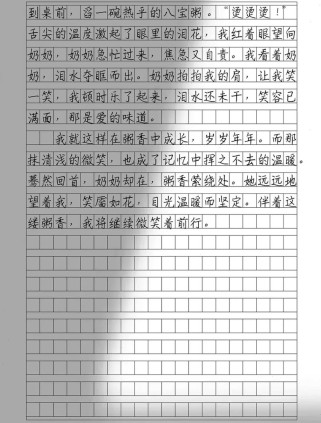 到桌前，舀一碗热乎的八宝粥。“烫烫烫！”
舌尖的温度激起了眼里的泪花，我红着眼望向
奶奶，奶奶急忙过来，焦急又自责。我看着奶
奶，泪水夺眶而出。奶奶拍拍我的肩，让我笑
一笑，我顿时乐了起来，泪水还未干，笑容已
满面，那是爱的味道。
我就这样在粥香中成长，岁岁年年。而那
抹清浅的微笑，也成了记忆中挥之不去的温暖。
蓦然回首，奶奶却在，粥香萦绕处。她远远地
望着我，笑靥如花，目光温暖而坚定。伴着这
缕粥香，我将继续微笑着前行。